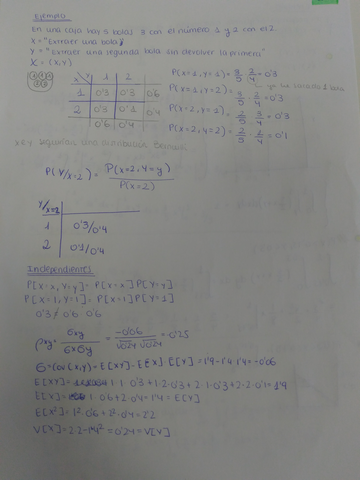 Ejemplo
En una caja hay 5 bolas, 3 con el número 1 y 2 con el 2.
X = "Extraer una bola"
Y = "Extraer una segunda bola sin devolver la primera"
X = (X,Y)
X Y 1 2
1 0'3 0'3 0'6
2 0'3 0'1 0'4
0'6 0'4
P(X=1, Y=1) = 3/5 · 2/4 = 0'3
P(X=1, Y=2) = 3/5 · 2/4 = 0'3
P(X=2, Y=1) = 2/5 · 3/4 = 0'3
P(X=2, Y=2) = 2/5 · 1/4 = 0'1
X e Y seguirían una distribución
P(Y/X=2) = P(X=2, Y=y) / P(X=2)
Y/X=2
1 0'3/0'4
2 0'1/0'4
Independientes
P[X=x, Y=y] = P[X=x] P[Y=y]
P[X=1, Y=1] = P[X=1] P[Y=1]
0'3 ≠ 0'6 · 0'6
ρxy = σxy / σx σy = -0'06 / √0'24 √0'24 = -0'25
σ = Cov(X,Y) = E[XY] - E[X] · E[Y] = 1'9 - 1'4 · 1'4 = -0'06
E[XY] = 1·1·0'3 + 1·2·0'3 + 2·1·0'3 + 2·2·0'1 = 1'9
E[X] = 1·0'6 + 2·0'4 = 1'4 = E[Y]
E[X²] = 1²·0'6 + 2²·0'4 = 2'2
V[X] = 2'2 - 1'4² = 0'24 = V[Y]